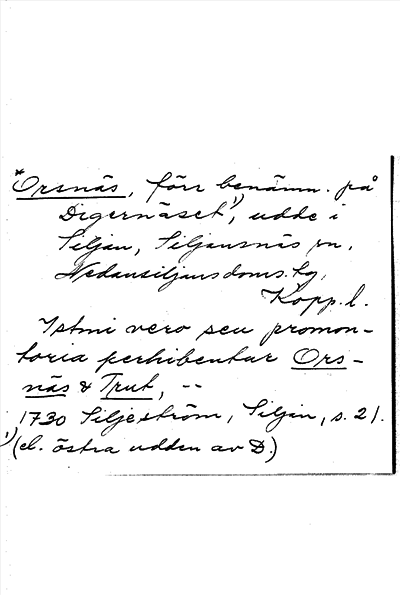 *Orsnäs, förr benämn. på
Digernäset¹⁾, udde i
Siljan, Siljansnäs sn,
Nedansiljans doms.hg,
Kopp. l.
Istmi vero seu promon-
toria perhibentar Ors-
näs & Trut, --
1730 Siljeström, Siljan, s. 21.
¹⁾(el. östra udden av D.)